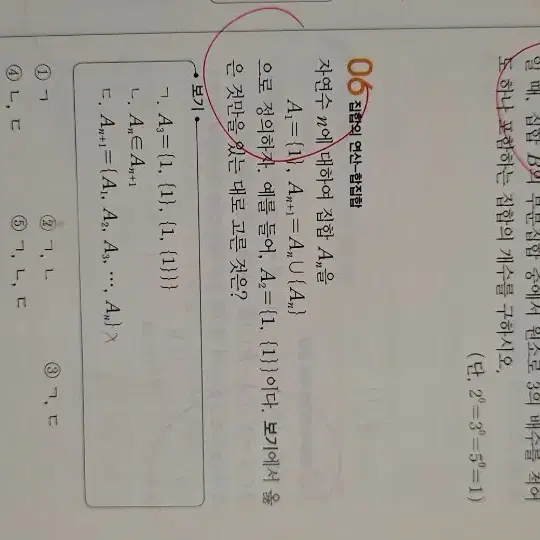 일 때, 집합 B의 부분집합 중에서 원소로 3의 배수를 적어
도 하나 포함하는 집합의 개수를 구하시오.
(단, 2⁰=3⁰=5⁰=1)
06 집합의 연산-합집합
자연수 n에 대하여 집합 Aₙ을
A₁={1}, Aₙ₊₁=Aₙ∪{Aₙ}
으로 정의하자. 예를 들어, A₂={1, {1}}이다. 보기에서 옳
은 것만을 있는 대로 고른 것은?
보기
ㄱ. A₃={1, {1}, {1, {1}}}
ㄴ. Aₙ∈Aₙ₊₁
ㄷ. Aₙ₊₁={A₁, A₂, A₃, ⋯, Aₙ}
① ㄱ ② ㄱ, ㄴ ③ ㄱ, ㄷ
④ ㄴ, ㄷ ⑤ ㄱ, ㄴ, ㄷ